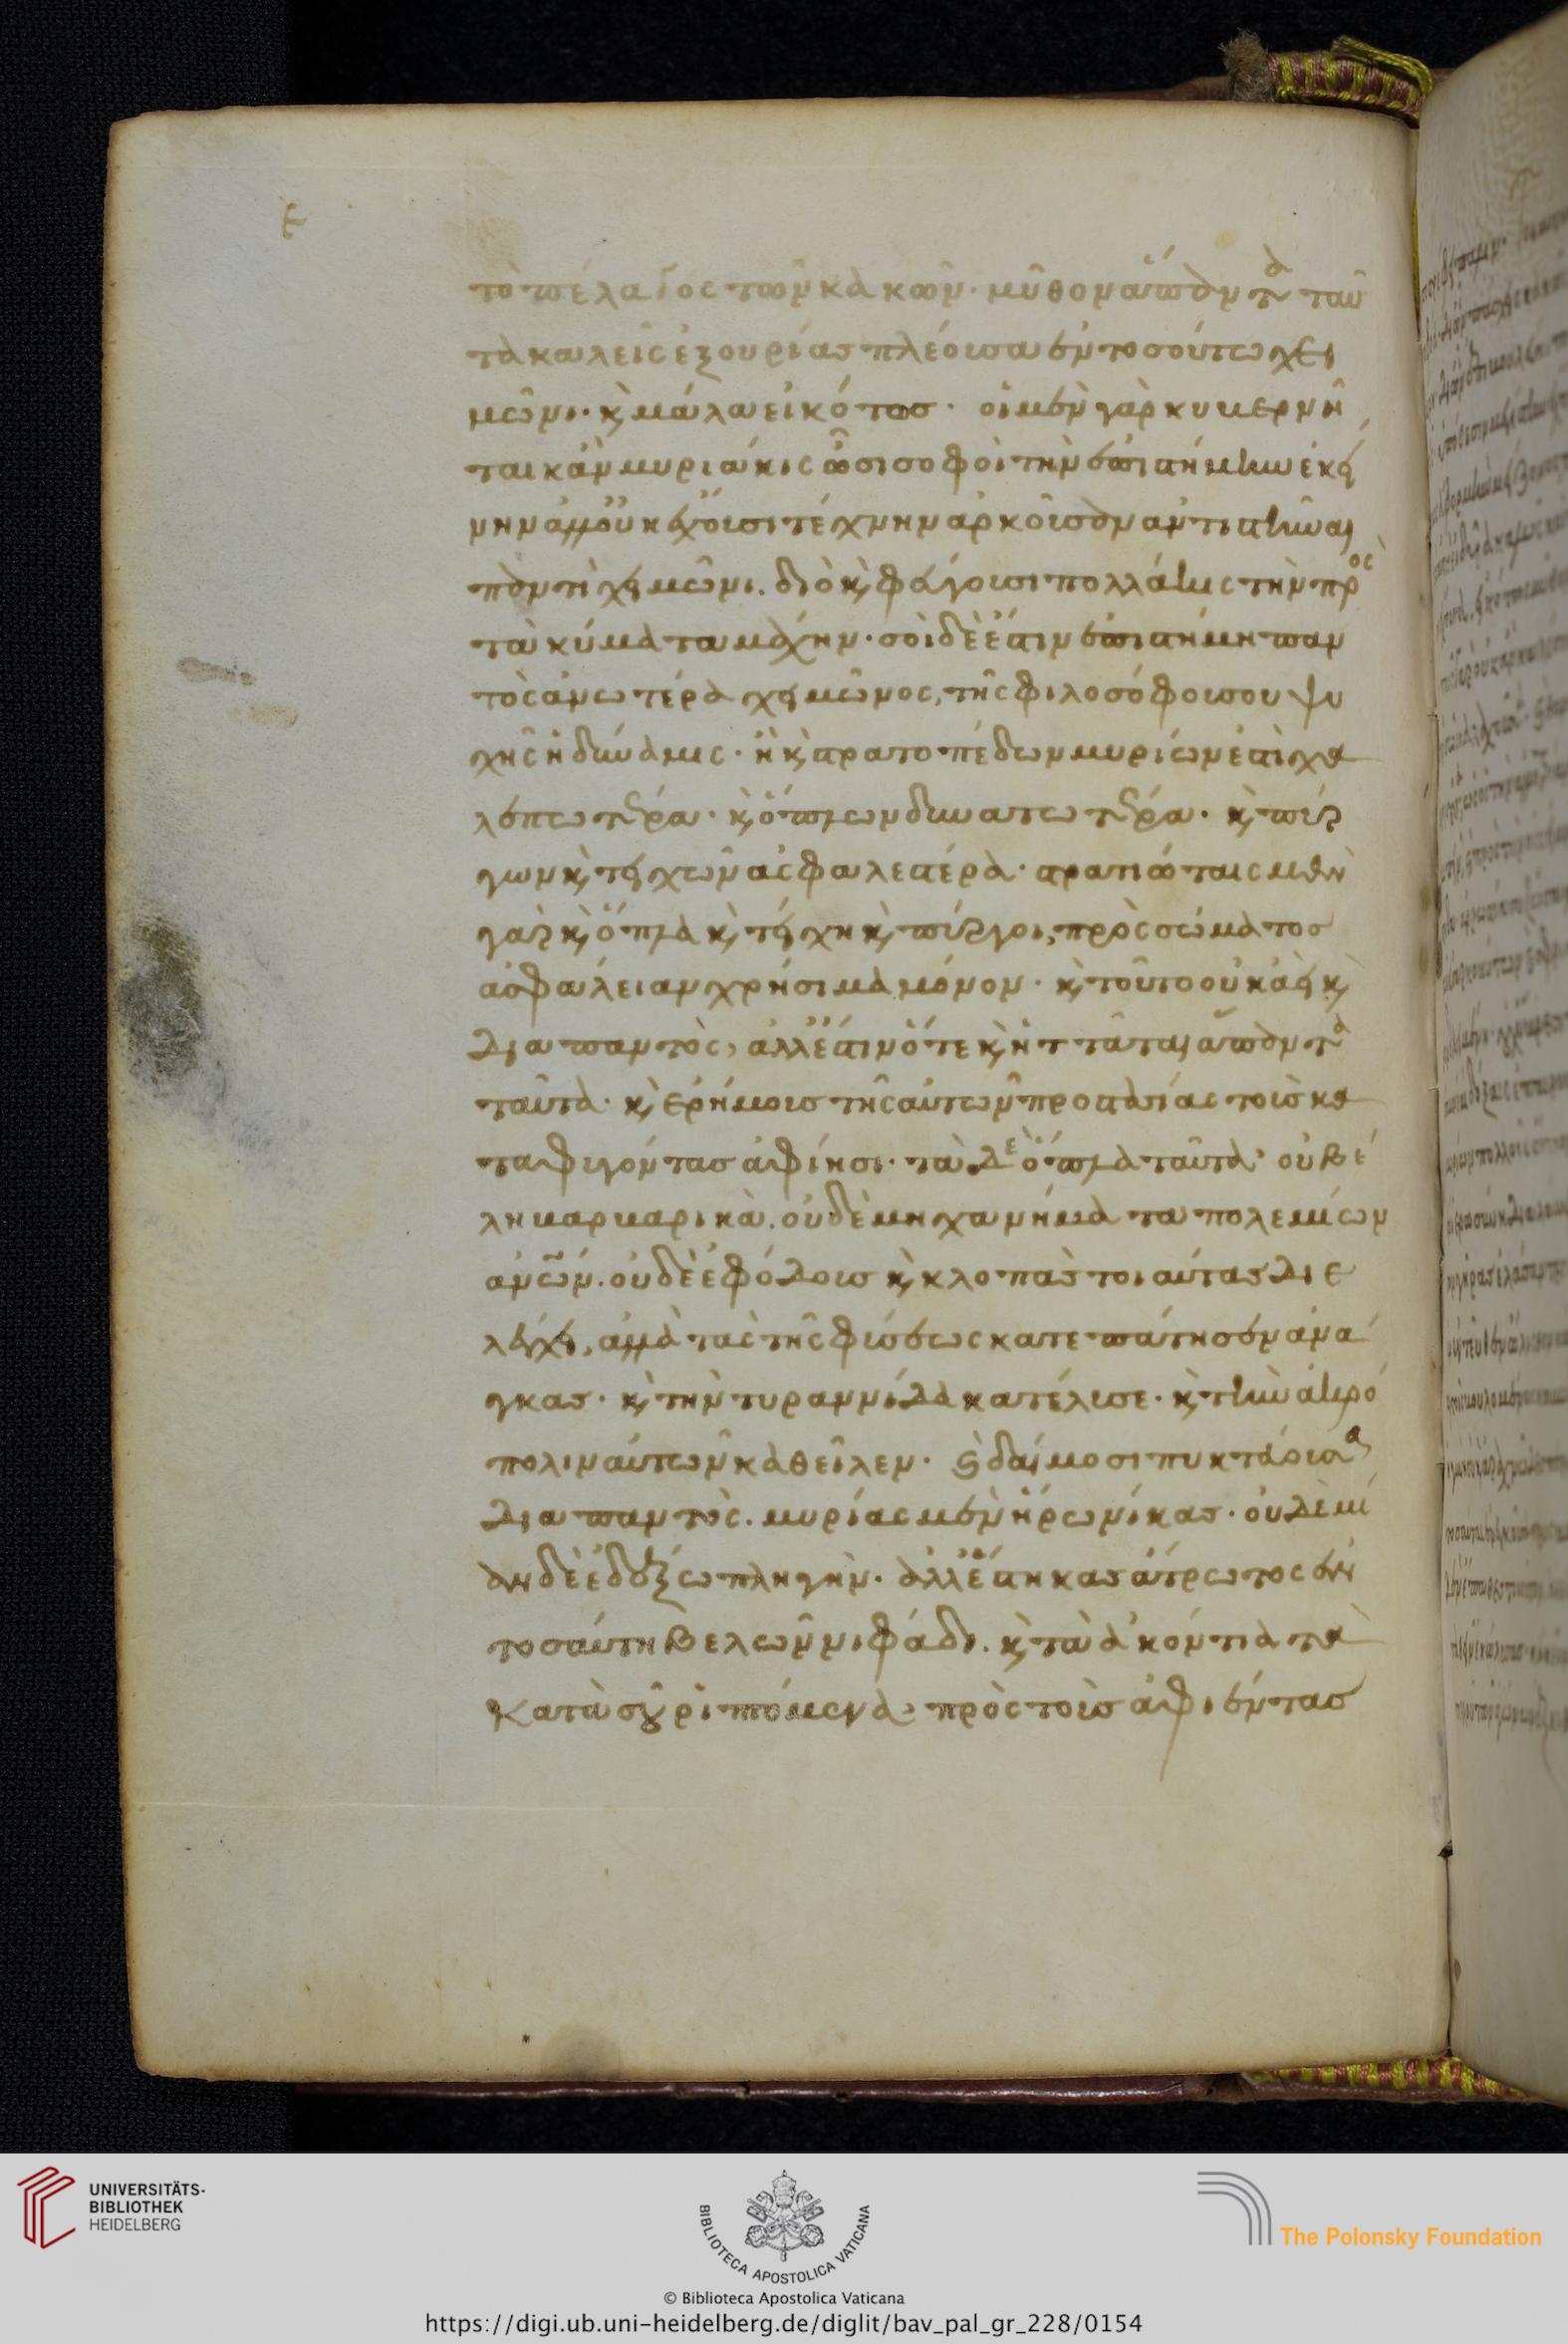 ε
τὸ πέλαγος τῶν κακῶν. μῦθον ἅπαντα ταῦ
τα καλεῖς ἐξουρίας πλέουσα ἐν τοσούτω χει
μῶνι. κ̀ μάλα εἰκότως. οἱ μὲν γὰρ κυβερνῆ
ται κἂν μυριάκις ὦσι σοφοὶ τὴν ἐπιστήμην ἐκεί
νην ἀλλ' οὐκ ἔχουσι τέχνην ἀρκοῦσαν ἀντιστῆναι
παντὶ χειμῶνι. διὸ κ̀ φεύγουσι πολλάκις τὴν πρὸς
τὰ κύματα μάχην. σοὶ δὲ ἔστιν ἐπιστήμη παν
τὸς ἀνωτέρα χειμῶνος, τῆς φιλοσόφου σου ψυ
χῆς ἡ δύναμις. ἣ κ̀ στρατοπέδων μυρίων ἐστὶ χα
λεπωτέρα. κ̀ ὅπλων δυνατωτέρα. κ̀ πύρ
γων κ̀ τειχῶν ἀσφαλεστέρα. στρατιώταις μὲν
γὰρ κ̀ ὅπλα κ̀ τείχη κ̀ πύργοι, πρὸς σώματος
ἀσφάλειαν χρήσιμα μόνον. κ̀ τοῦτο οὐκ ἀεὶ κ̀
διαπαντὸς, ἀλλ' ἔστιν ὅτε κ̀ ἡττᾶται ἅπαντα
ταῦτα. κ̀ ἐρήμους τῆς αὐτῶν προστασίας τοὺς κα
ταφυγόντας ἀφίησι. τὰ δὲ ὅπλα ταῦτα οὐ βέ
λη βαρβαρικὰ. οὐδὲ μηχανήματα πολεμίων
ἀνεῖλεν. οὐδὲ ἐφόδους κ̀ κλοπὰς τοιαύτας διε
λέγχει, ἀλλὰ τὰς τῆς φύσεως κατεπάτησεν ἀνά
γκας. κ̀ τὴν τυραννίδα κατέλυσε. κ̀ τὴν ἀκρό
πολιν αὐτῶν καθεῖλεν. κ̀ δαίμοσι πυκτεύουσα
διαπαντὸς. μυρίας μὲν ἤρω νίκας. οὐδε μί
αν δὲ ἐδέξω πληγὴν. ἀλλ' ἕστηκας ἄτρωτος ἐν
τοσαύτη βελῶν νιφάδι. κ̀ τὰ ἀκόντια τὰ
κατὰ σοῦ ῥιπτόμενα πρὸς τοὺς ἀφιέντας
UNIVERSITÄTS-
BIBLIOTHEK
HEIDELBERG
BIBLIOTECA APOSTOLICA VATICANA
The Polonsky Foundation
© Biblioteca Apostolica Vaticana
https://digi.ub.uni-heidelberg.de/diglit/bav_pal_gr_228/0154